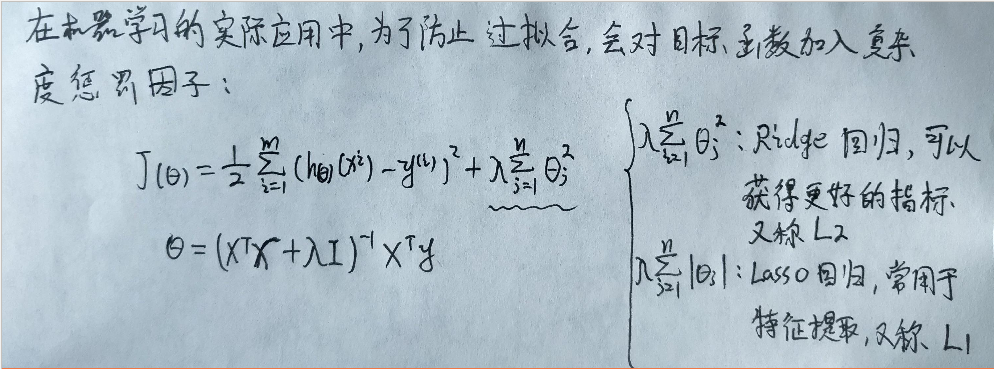 在机器学习的实际应用中,为了防止过拟合,会对目标函数加入复杂
度惩罚因子:
J(θ) = 1/2 ∑_{i=1}^{m} (h(θ)(x^i) - y^(i))^2 + λ∑_{j=1}^{n} θ_j^2
θ = (X^T X + λI)^{-1} X^T y
λ∑_{i=1}^{n} θ_j^2 : Ridge 回归, 可以
获得更好的指标、
又称 L2
λ∑_{j=1}^{n} |θ_j| : Lasso 回归, 常用于
特征提取, 又称 L1